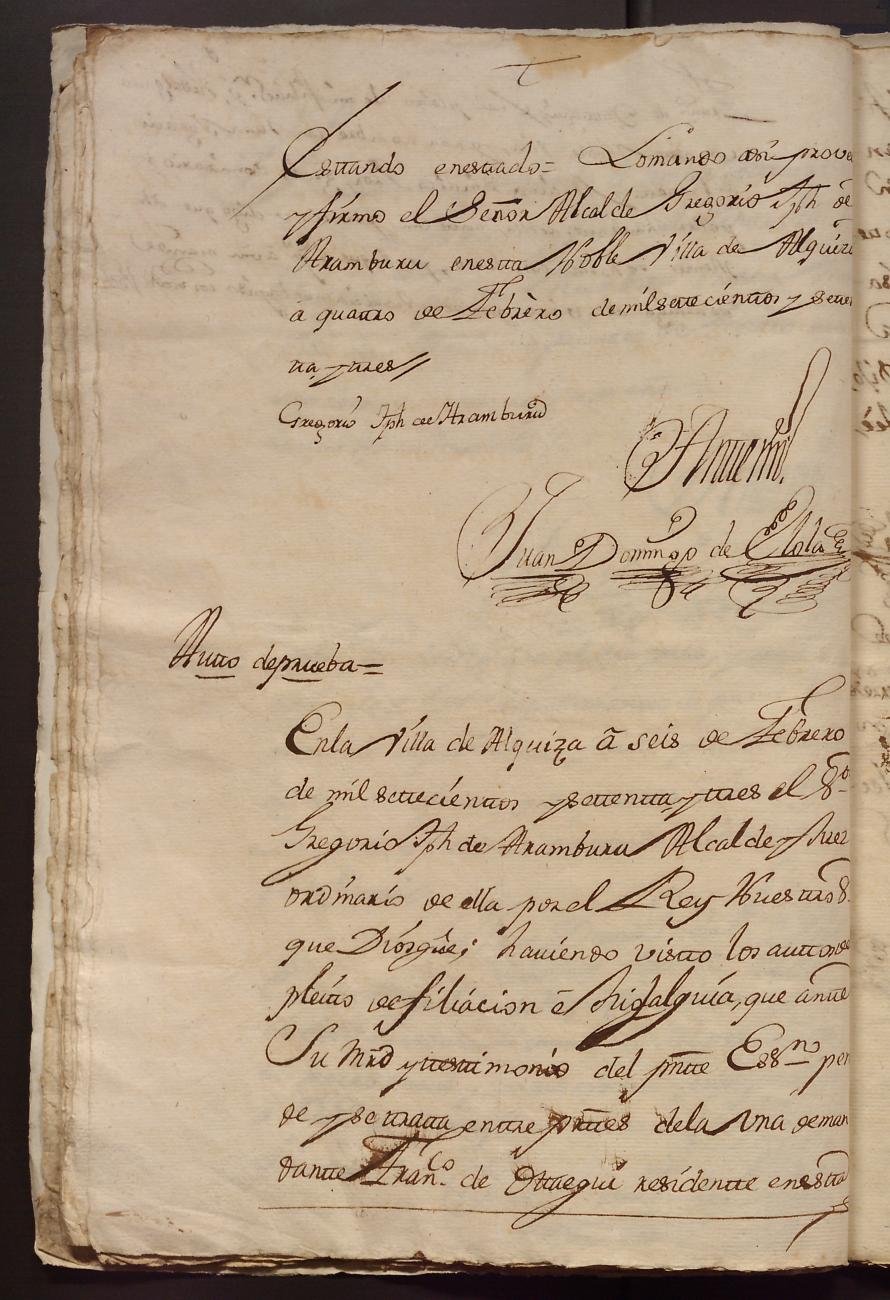 Esttando enesttado= Lomando asi prove
y firmo el Señor Alcalde Gregorio Jph de
Aramburu enestta Noble Villa de Alquiza
a quattro de Febrero de mil settecienttos y setten
tta, y ttres//
Gregorio Jph de Aramburu
Antte mi.
Juan Domingo de Elola
Autto de prueba=
Enla Villa de Alquiza a seis de Febrero
de mil settecienttos y settentta y ttres el Sor
Gregorio Jph de Aramburu Alcalde y Juez
ordinario de ella por el Rey Nuesttro S.
que Dios gue; haviendo vistto los auttos de
pleitto de filiacion e hidalguia, que antte
Su Mrd y testtimonio del pntte Essno pen
de y se ttratta enttre parttes dela una deman
dantte Franco. de Ottegui residentte enestta